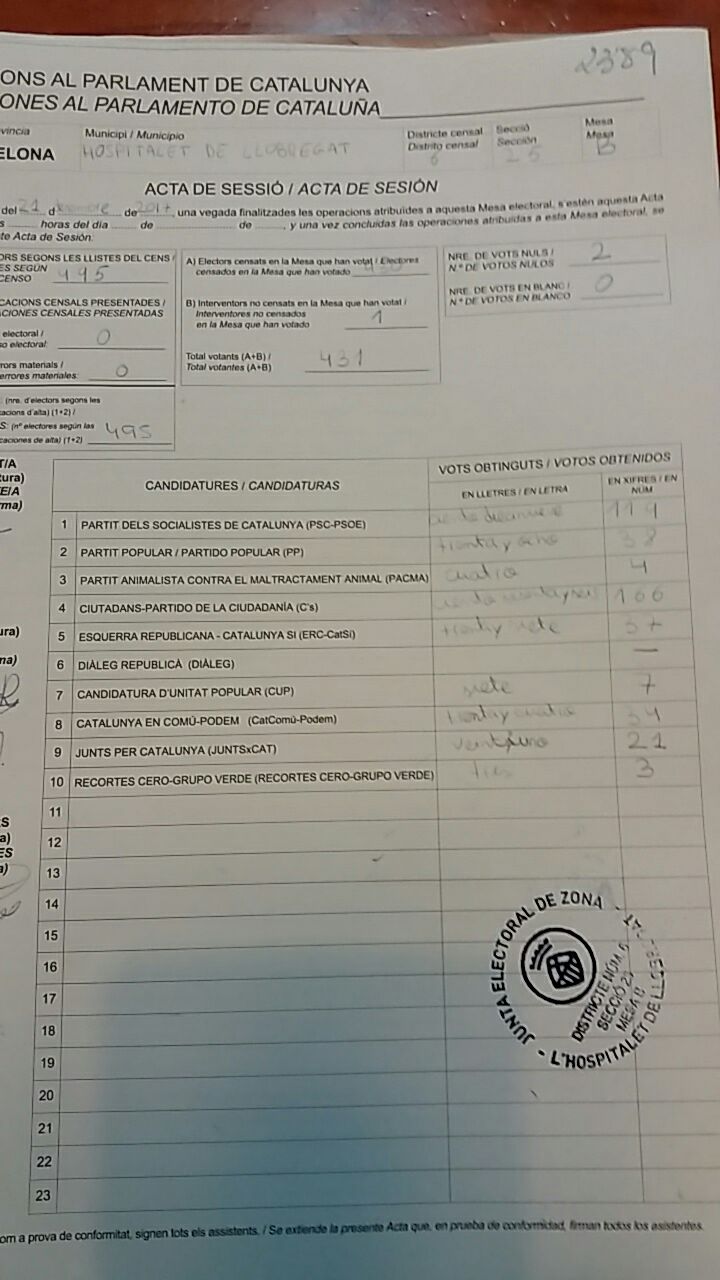 2389
ONS AL PARLAMENT DE CATALUNYA
ONES AL PARLAMENTO DE CATALUÑA
víncia
Municipi / Municipio
Districte censal
Distrito censal
Secció
Sección
Mesa
Mesa
ELONA
HOSPITALET DE LLOBREGAT
6
B
ACTA DE SESSIÓ / ACTA DE SESIÓN
del 21 d de 2017, una vegada finalitzades les operacions atribuïdes a aquesta Mesa electoral, s'estén aquesta Acta
s horas del día de de , y una vez concluidas las operaciones atribuidas a esta Mesa electoral, se
te Acta de Sesión:
ORS SEGONS LES LLISTES DEL CENS /
ES SEGÚN
CENSO 495
CACIONS CENSALS PRESENTADES /
CIONES CENSALES PRESENTADAS
electoral /
so electoral: 0
rors materials /
errores materiales: 0
(nre. d'electors segons les
cacions d'alta) (1+2) /
S: (nº electores según las
caciones de alta) (1+2) 495
A) Electors censats en la Mesa que han votat / Electores
censados en la Mesa que han votado 430
B) Interventors no censats en la Mesa que han votat /
Interventores no censados
en la Mesa que han votado 1
Total votants (A+B) /
Total votantes (A+B) 431
NRE. DE VOTS NULS /
N.º DE VOTOS NULOS 2
NRE. DE VOTS EN BLANC /
N.º DE VOTOS EN BLANCO 0
T/A
tura)
TE/A
rma)
CANDIDATURES / CANDIDATURAS
VOTS OBTINGUTS / VOTOS OBTENIDOS
EN LLETRES / EN LETRA
EN XIFRES / EN
NÚM
1 PARTIT DELS SOCIALISTES DE CATALUNYA (PSC-PSOE) 119
2 PARTIT POPULAR / PARTIDO POPULAR (PP) treinta y ocho 38
3 PARTIT ANIMALISTA CONTRA EL MALTRACTAMENT ANIMAL (PACMA) cuatro 4
4 CIUTADANS-PARTIDO DE LA CIUDADANÍA (C's) 166
5 ESQUERRA REPUBLICANA - CATALUNYA SI (ERC-CatSí) treinta y siete 37
6 DIÀLEG REPUBLICÀ (DIÀLEG) —
7 CANDIDATURA D'UNITAT POPULAR (CUP) siete 7
8 CATALUNYA EN COMÚ-PODEM (CatComú-Podem) treinta y cuatro 34
9 JUNTS PER CATALUNYA (JUNTSxCAT) veintiuno 21
10 RECORTES CERO-GRUPO VERDE (RECORTES CERO-GRUPO VERDE) tres 3
11
12
13
14
15
16
17
18
19
20
21
22
23
ura)
na)
S
a)
ES
a)
JUNTA ELECTORAL DE ZONA
DISTRICTE NÚM. 6
SECCIÓ
MESA B
- L'HOSPITALET DE LLOBRE
om a prova de conformitat, signen tots els assistents. / Se extiende la presente Acta que, en prueba de conformidad, firman todos los asistentes.